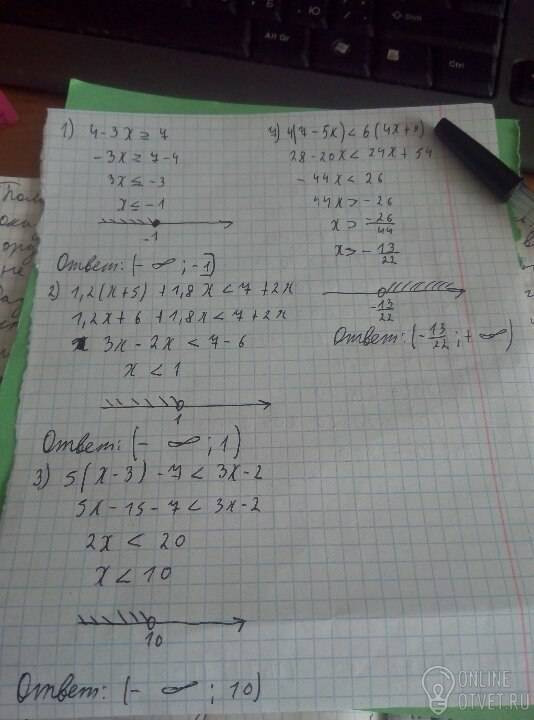 1) 4-3x ≥ 7
-3x ≥ 7-4
3x ≤ -3
x ≤ -1
-1
Ответ: (-∞; -1]
2) 1,2(x+5) + 1,8x < 7 + 2x
1,2x + 6 + 1,8x < 7 + 2x
3x - 2x < 7-6
x < 1
1
Ответ: (-∞; 1)
3) 5(x-3) - 7 < 3x-2
5x-15-7 < 3x-2
2x < 20
x < 10
10
Ответ: (-∞; 10)
4(7-5x) < 6(4x+9)
28-20x < 24x + 54
-44x < 26
44x > -26
x > -26/44
x > -13/22
-13/22
Ответ: (-13/22; +∞)
Alt Gr
Ctrl
Shift
Б
Ю
ONLINE
OTVET.RU